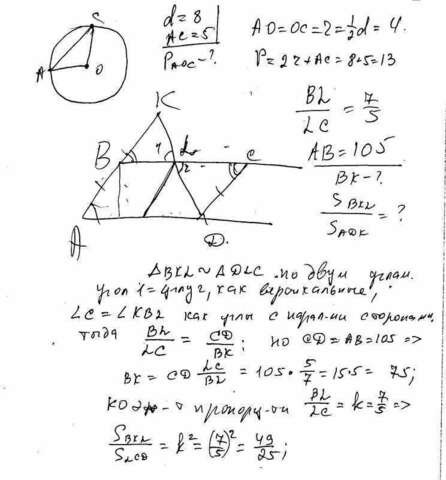 C
A
O
d = 8
AC = 5
P_AOC - ?
AO = OC = r = 1/2 d = 4.
P = 2r + AC = 8 + 5 = 13
K
B
1
L
2
C
A
D.
BL/LC = 7/5
AB = 105
BK - ?
S_BKL/S_ADK = ?
ΔBKL ~ ΔDLC по двум углам.
угол 1 = углу 2, как вертикальные,
∠C = ∠KBL как углы с парал-ми сторонами.
тогда BL/LC = CD/BK; но CD = AB = 105 =>
BK = CD LC/BL = 105 · 5/7 = 15·5 = 75;
коэф-т пропорц-ти BL/LC = k = 7/5 =>
S_BKL/S_LCD = k² = (7/5)² = 49/25;